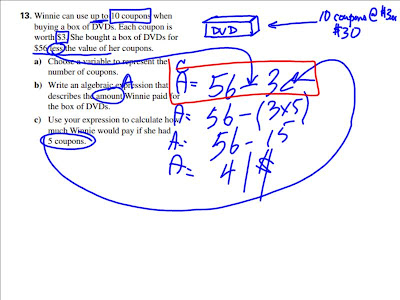 13. Winnie can use up to 10 coupons when
buying a box of DVDs. Each coupon is
worth $3. She bought a box of DVDs for
$56 less the value of her coupons.
a) Choose a variable to represent the
number of coupons.
b) Write an algebraic expression that
describes the amount Winnie paid for
the box of DVDs.
c) Use your expression to calculate how
much Winnie would pay if she had
5 coupons.
DVD
10 coupons @ $3
$30
A
A = 56 - 3c
A = 56 - (3x5)
A = 56 - 15
A = 41 $